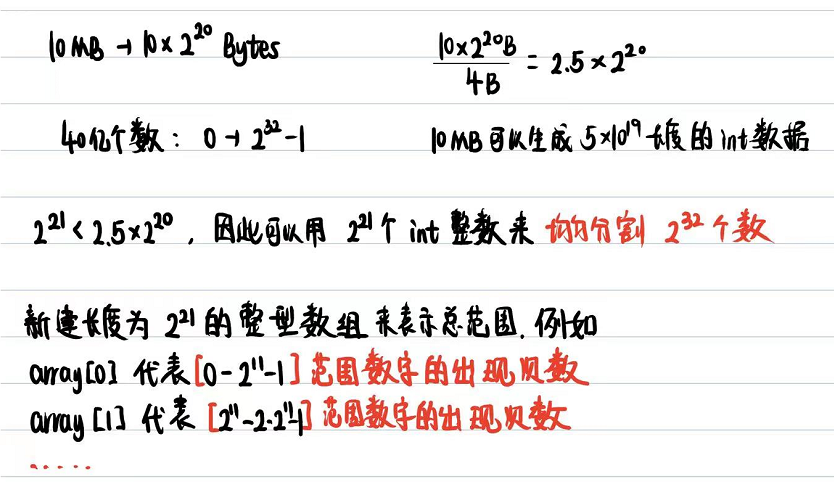 10MB → 10×2²⁰ Bytes
10×2²⁰B / 4B = 2.5×2²⁰
40亿个数：0→2³²-1
10MB可以生成5×10¹⁹长度的int数据
2²¹<2.5×2²⁰，因此可以用 2²¹个 int 整数来 均匀分割 2³²个数
新建长度为 2²¹的整型数组来表示总范围，例如
array[0] 代表[0-2¹¹-1]范围数字的出现次数
array[1] 代表 [2¹¹-2·2¹¹-1]范围数字的出现次数
......